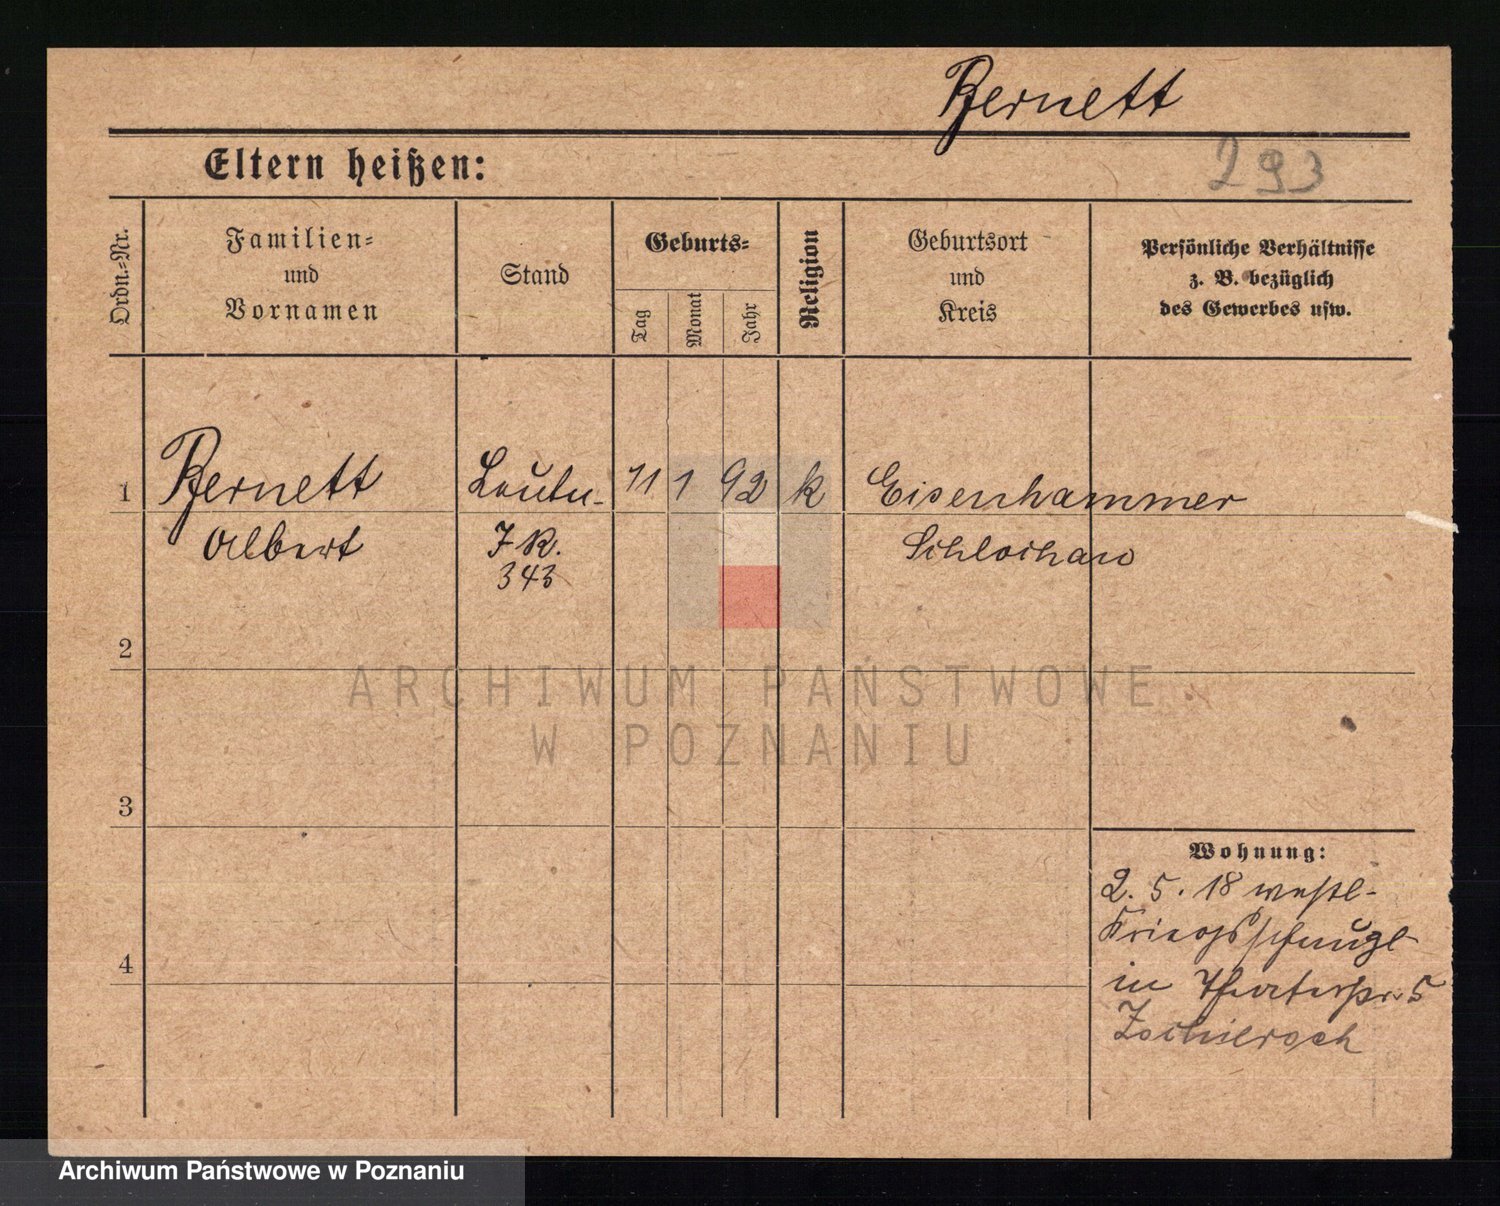 Bernett
Eltern heißen:
293
Ordn.-Nr.
Familien-
und
Vornamen
Stand
Geburts-
Tag
Monat
Jahr
Religion
Geburtsort
und
Kreis
Persönliche Verhältnisse
z. B. bezüglich
des Gewerbes usw.
1 Bernett Leutn. 11 1 92 k Eisenhammer
Albert J R. Schlochau
343
2
ARCHIWUM PAŃSTWOWE
W POZNANIU
3
Wohnung:
2. 5. 18 westl.
4
in Theaterstr. 5
Archiwum Państwowe w Poznaniu